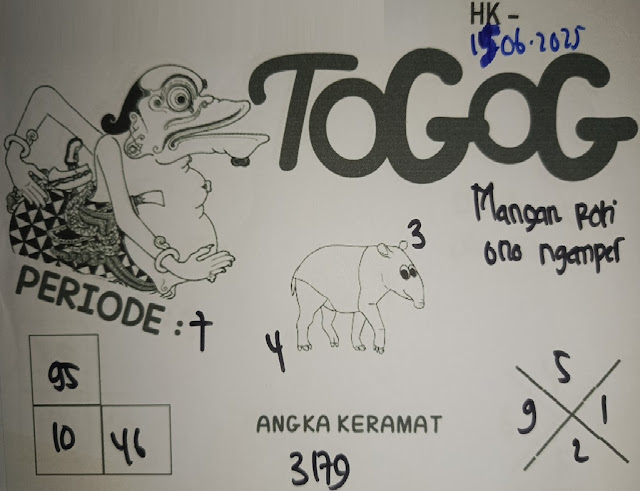 HK -
15.06.2025
TOGOG
Mangan Roti
ono ngemper
PERIODE : 7
3
4
95
10 46
ANGKA KERAMAT
3179
5
9 1
2